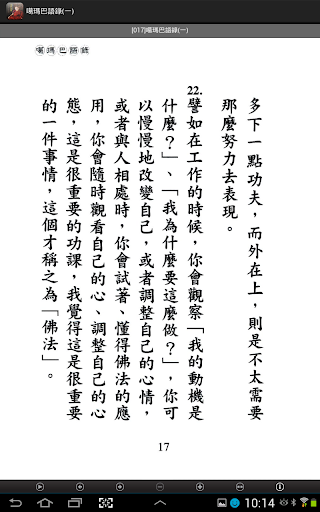 噶瑪巴語錄(一)
[017]噶瑪巴語錄(一)
噶瑪巴語錄
多下一點功夫，而外在上，則是不太需要
那麼努力去表現。
22.
譬如在工作的時候，你會觀察「我的動機是
什麼？」、「我為什麼要這麼做？」，你可
以慢慢地改變自己，或者調整自己的心情，
或者與人相處時，你會試著、懂得佛法的應
用，你會隨時觀看自己的心、調整自己的心
態，這是很重要的功課，我覺得這是很重要
的一件事情，這個才稱之為「佛法」。
17
10:14